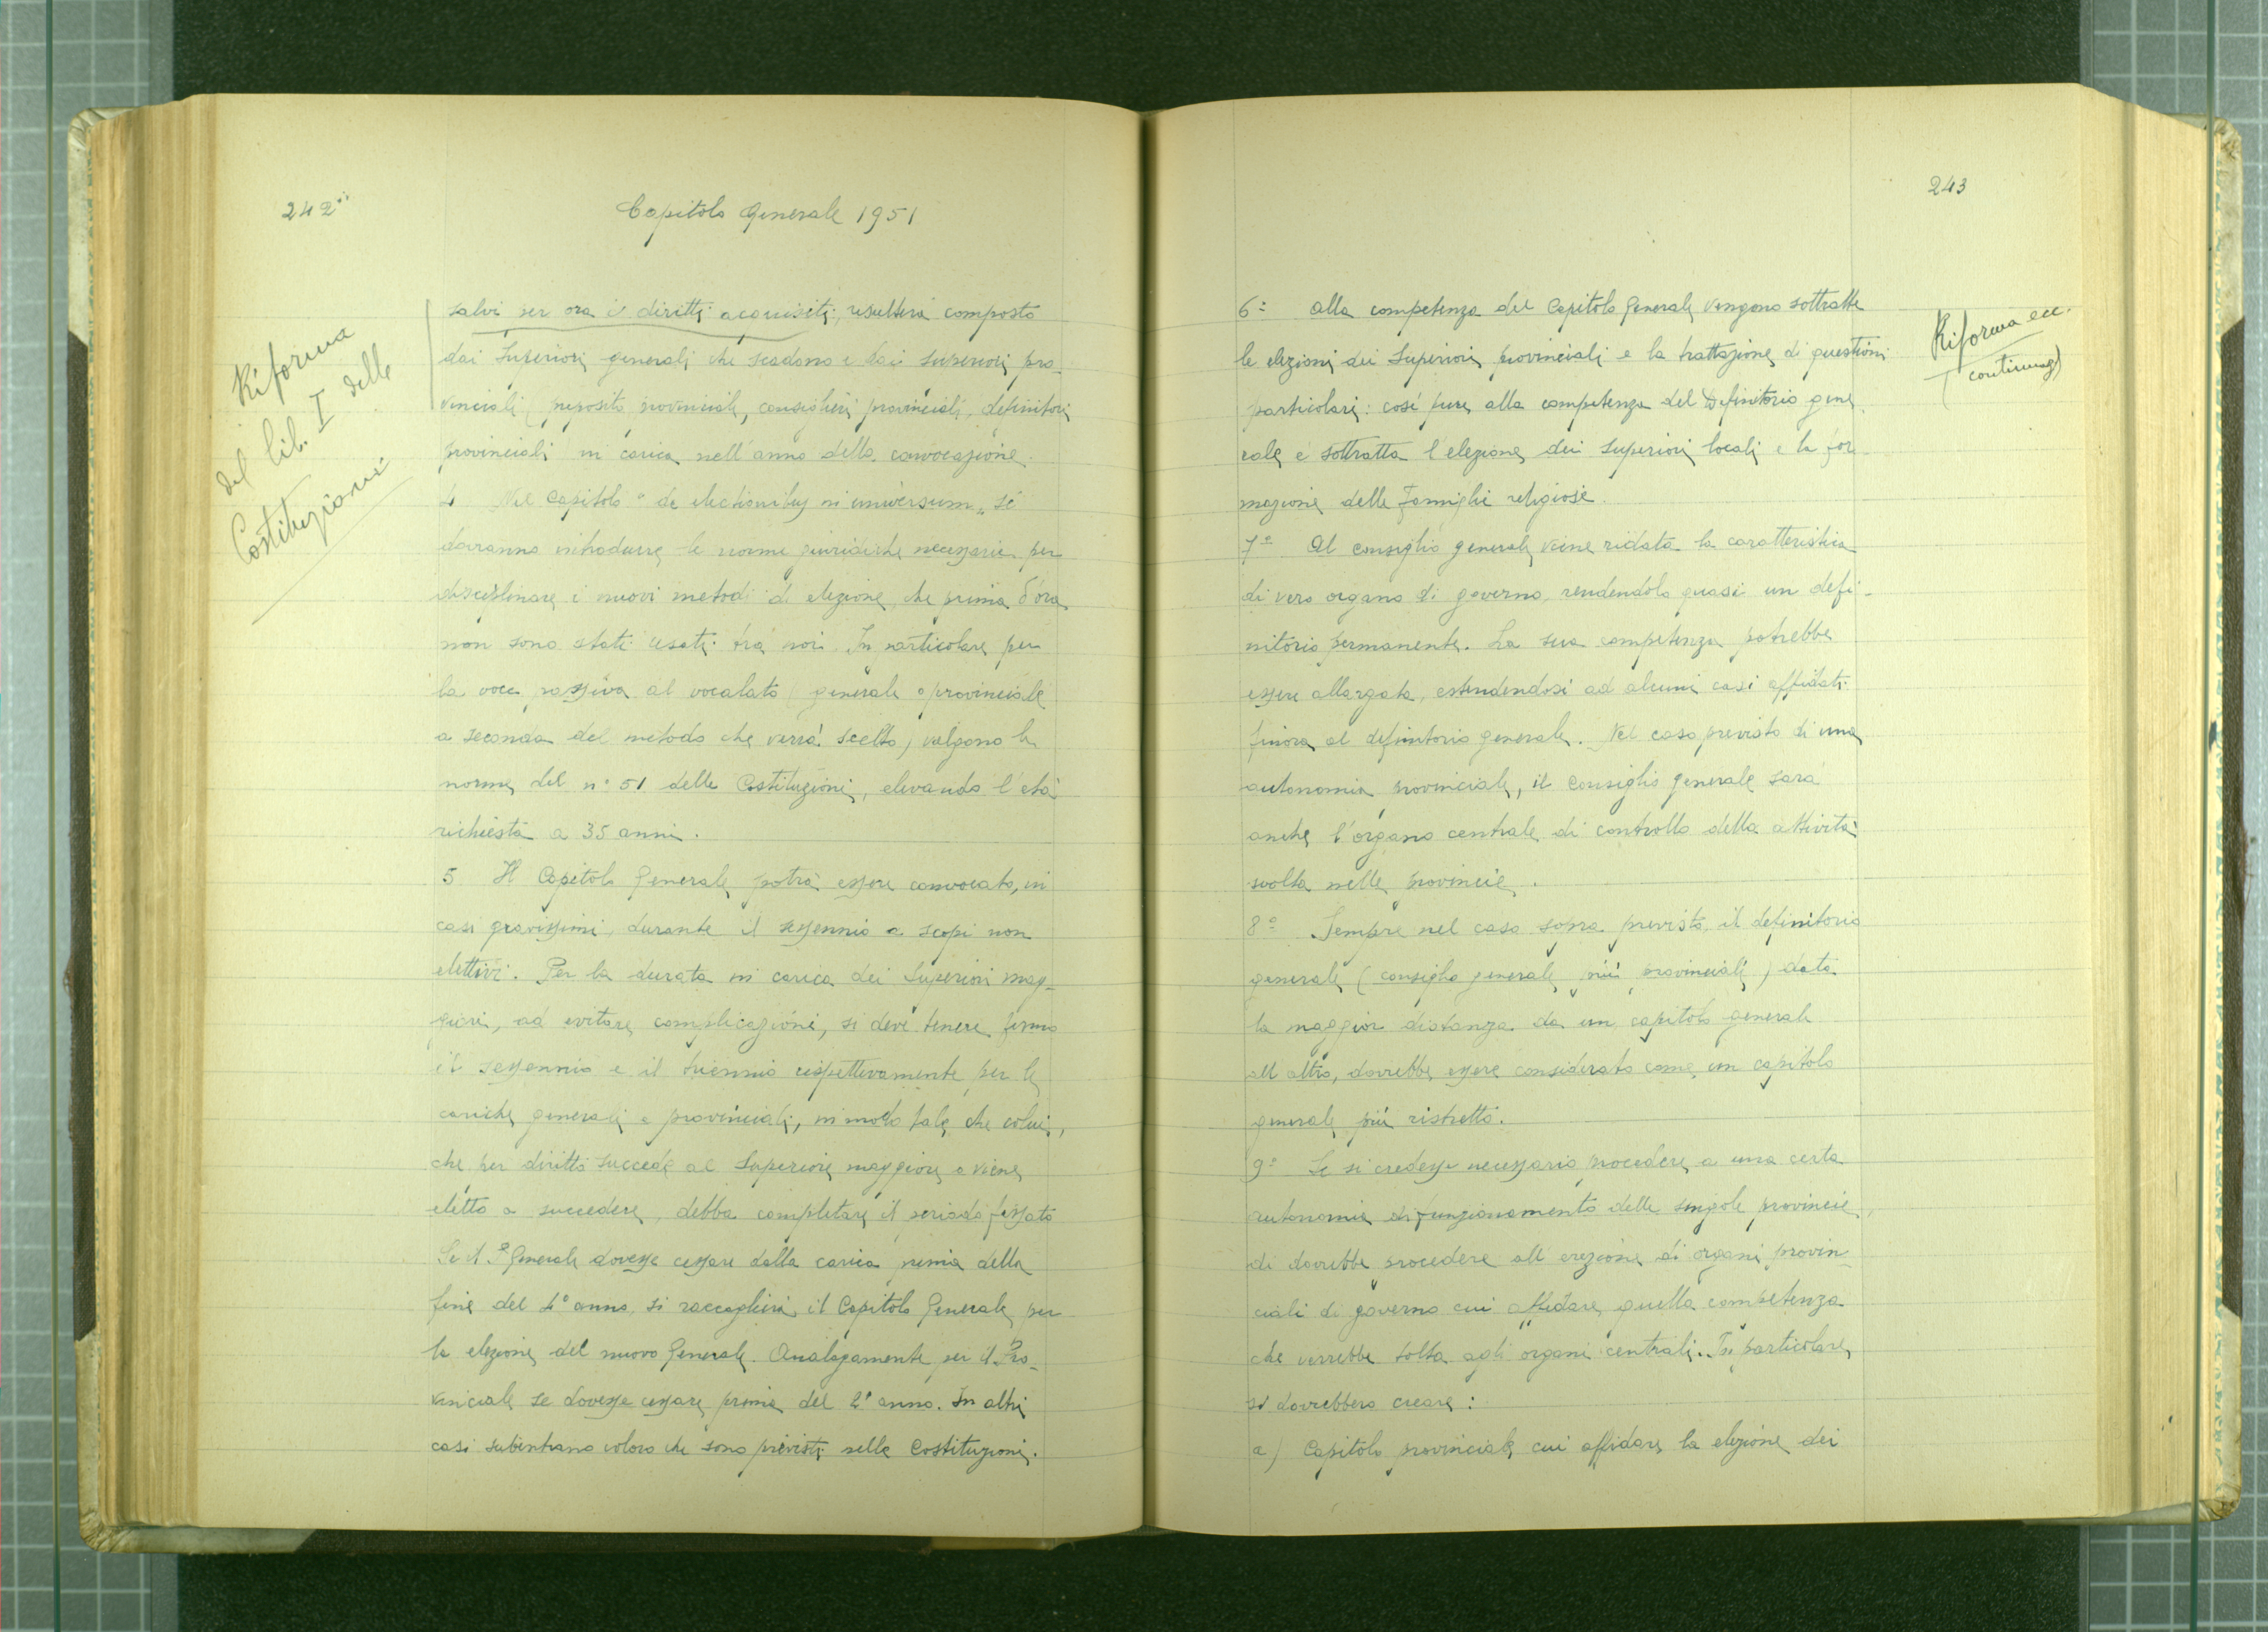 242
Capitolo Generale 1951
Riforma
del lib. I delle
Costituzioni
salvi per ora i diritti acquisiti, resulterà composto
dai Superiori generali che scadono e dai superiori pro-
vinciali (preposito provinciale, consiglieri provinciali, definitori
provinciali in carica nell'anno della convocazione.
4 Nel Capitolo "de electionibus in universum" si
dovranno introdurre le norme giuridiche necessarie per
disciplinare i nuovi metodi di elezione, che prima d'ora
non sono stati usati tra noi. In particolare per
la voce passiva al vocalato (generale o provinciale
a seconda del metodo che verrà scelto) valgono le
norme del n° 51 delle Costituzioni, elevando l'età
richiesta a 35 anni.
5 Il Capitolo Generale potrà essere convocato, in
casi gravissimi, durante il sessennio a scopi non
elettivi. Per la durata in carica dei Superiori mag-
giori, ad evitare complicazioni, si deve tenere fermo
il sessennio e il triennio rispettivamente per le
cariche generali e provinciali, in modo tale che colui,
che per diritto succede al Superiore maggiore o viene
eletto a succedere, debba completare il periodo fissato
Se il P. Generale dovesse cessare dalla carica prima della
fine del 4° anno, si raccoglierà il Capitolo Generale per
la elezione del nuovo Generale. Analogamente per il Pro-
vinciale se dovesse cessare prima del 2° anno. In altri
casi subentrano coloro che sono previsti nelle Costituzioni.
243
Riforma ecc.
(continuaz)
6° Alla competenza del Capitolo Generale vengono sottratte
le elezioni dei Superiori provinciali e la trattazione di questioni
particolari: così pure alla competenza del Definitorio gene
rale è sottratta l'elezione dei Superiori locali e la for-
mazione delle Famiglie religiose.
7° Al consiglio generale viene ridata la caratteristica
di vero organo di governo, rendendolo quasi un defi-
nitorio permanente. La sua competenza potrebbe
essere allargata, estendendosi ad alcuni casi affidati
finora al definitorio generale. Nel caso previsto di una
autonomia provinciale, il Consiglio generale sarà
anche l'organo centrale di controllo della attività
svolta nelle provincie.
8° Sempre nel caso sopra previsto, il definitorio
generale (consiglio generale più provinciali) data
la maggior distanza da un capitolo generale
all'altro, dovrebbe essere considerato come un capitolo
generale più ristretto.
9° Se si credesse necessario procedere a una certa
autonomia di funzionamento delle singole provincie,
di dovrebbe procedere all'erezione di organi provin-
ciali di governo cui affidare quella competenza
che verrebbe tolta agli organi centrali. In particolare,
si dovrebbero creare:
a) Capitolo provinciale cui affidare la elezione dei